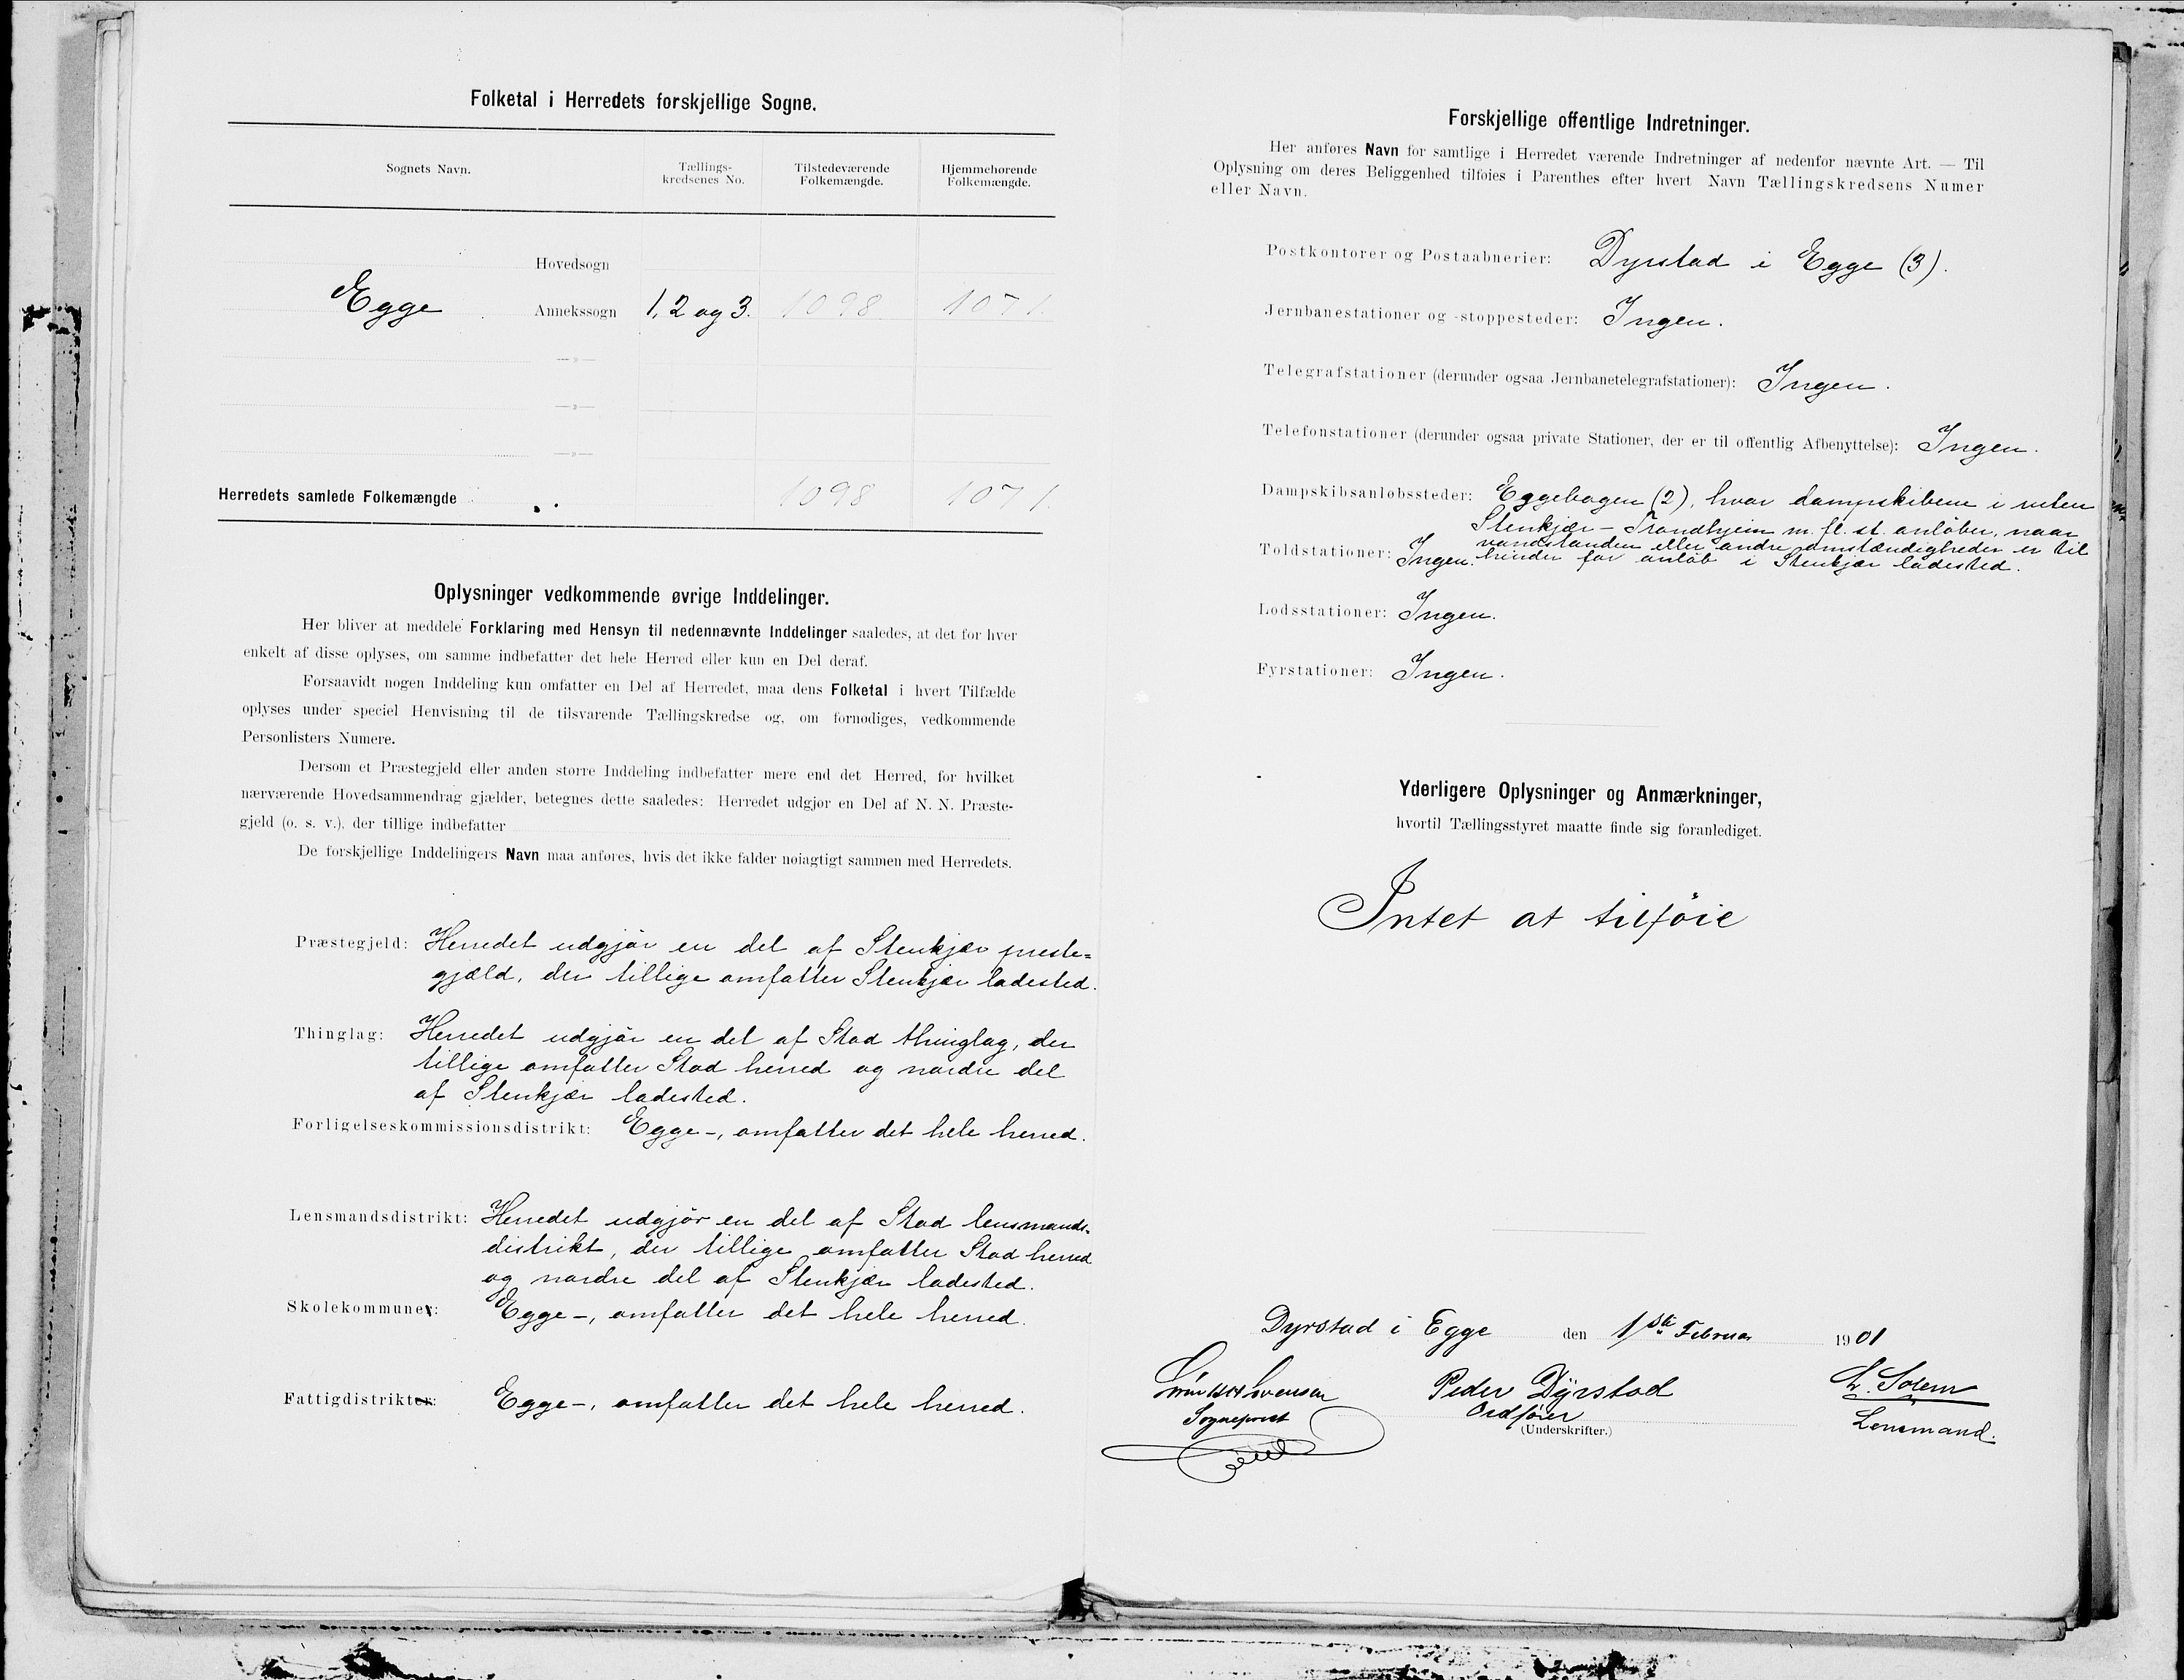 Folketal i Herredets forskjellige Sogne.
Sognets Navn.
Tællings-
kredsenes No.
Tilstedeværende
Folkemængde.
Hjemmehørende
Folkemængde.
Hovedsogn
Egge Annekssogn 1, 2 og 3. 1098. 1071.
—»—
—»—
—»—
Herredets samlede Folkemængde 1098 1071.
Oplysninger vedkommende øvrige Inddelinger.
Her bliver at meddele Forklaring med Hensyn til nedennævnte Inddelinger saaledes, at det for hver
enkelt af disse oplyses, om samme indbefatter det hele Herred eller kun en Del deraf.
Forsaavidt nogen Inddeling kun omfatter en Del af Herredet, maa dens Folketal i hvert Tilfælde
oplyses under speciel Henvisning til de tilsvarende Tællingskredse og, om fornødiges, vedkommende
Personlisters Numere.
Dersom et Præstegjeld eller anden større Inddeling indbefatter mere end det Herred, for hvilket
nærværende Hovedsammendrag gjælder, betegnes dette saaledes: Herredet udgjør en Del af N. N. Præste-
gjeld (o. s. v.), der tillige indbefatter
De forskjellige Inddelingers Navn maa anføres, hvis det ikke falder nøiagtigt sammen med Herredets.
Præstegjeld: Herredet udgjör en del af Stenkjær preste=
gjæld, der tillige omfatter Stenkjær ladested.
Thinglag: Herredet udgjör en del af Stod thinglag, der
tillige omfatter Stod herred og nordre del
af Stenkjær ladested.
Forligelseskommissionsdistrikt: Egge-, omfatter det hele herred.
Lensmandsdistrikt: Herredet udgjör en del af Stod lensmands-
distrikt, der tillige omfatter Stod herred
og nordre del af Stenkjær ladested.
Skolekommuner: Egge-, omfatter det hele herred.
Fattigdistrikter: Egge-, omfatter det hele herred.
Forskjellige offentlige Indretninger.
Her anføres Navn for samtlige i Herredet værende Indretninger af nedenfor nævnte Art. — Til
Oplysning om deres Beliggenhed tilføies i Parenthes efter hvert Navn Tællingskredsens Numer
eller Navn.
Postkontorer og Postaabnerier: Dyrstad i Egge (3).
Jernbanestationer og -stoppesteder: Ingen.
Telegrafstationer (derunder ogsaa Jernbanetelegrafstationer): Ingen.
Telefonstationer (derunder ogsaa private Stationer, der er til offentlig Afbenyttelse): Ingen.
Dampskibsanløbssteder: Eggebogen (2), hvor dampskibene i ruten
Stenkjær - Trondhjem m. fl. st. anløber, naar
vandstanden eller andre omstændigheder er til
hinder for anløb i Stenkjær ladested.
Toldstationer: Ingen.
Lodsstationer: Ingen.
Fyrstationer: Ingen.
Yderligere Oplysninger og Anmærkninger,
hvortil Tællingsstyret maatte finde sig foranlediget.
Intet at tilföie
Dyrstad i Egge den 1ste Februar 1901
Peder Dÿrstad
Ordfører
Sogneprest
Solem
Lensmand.
(Underskrifter.)